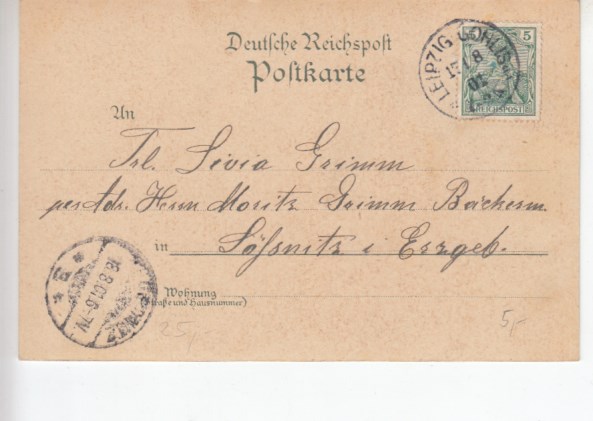 Deutsche Reichspost
Postkarte
LEIPZIG GOHLIS
15/8
01
5
REICHSPOST
An
Frl. Livia Grimm
per Adr. Herrn Moritz Grimm Bäckerm.
in Lößnitz i Erzgeb.
Wohnung
(Straße und Hausnummer)
25,-
5,-